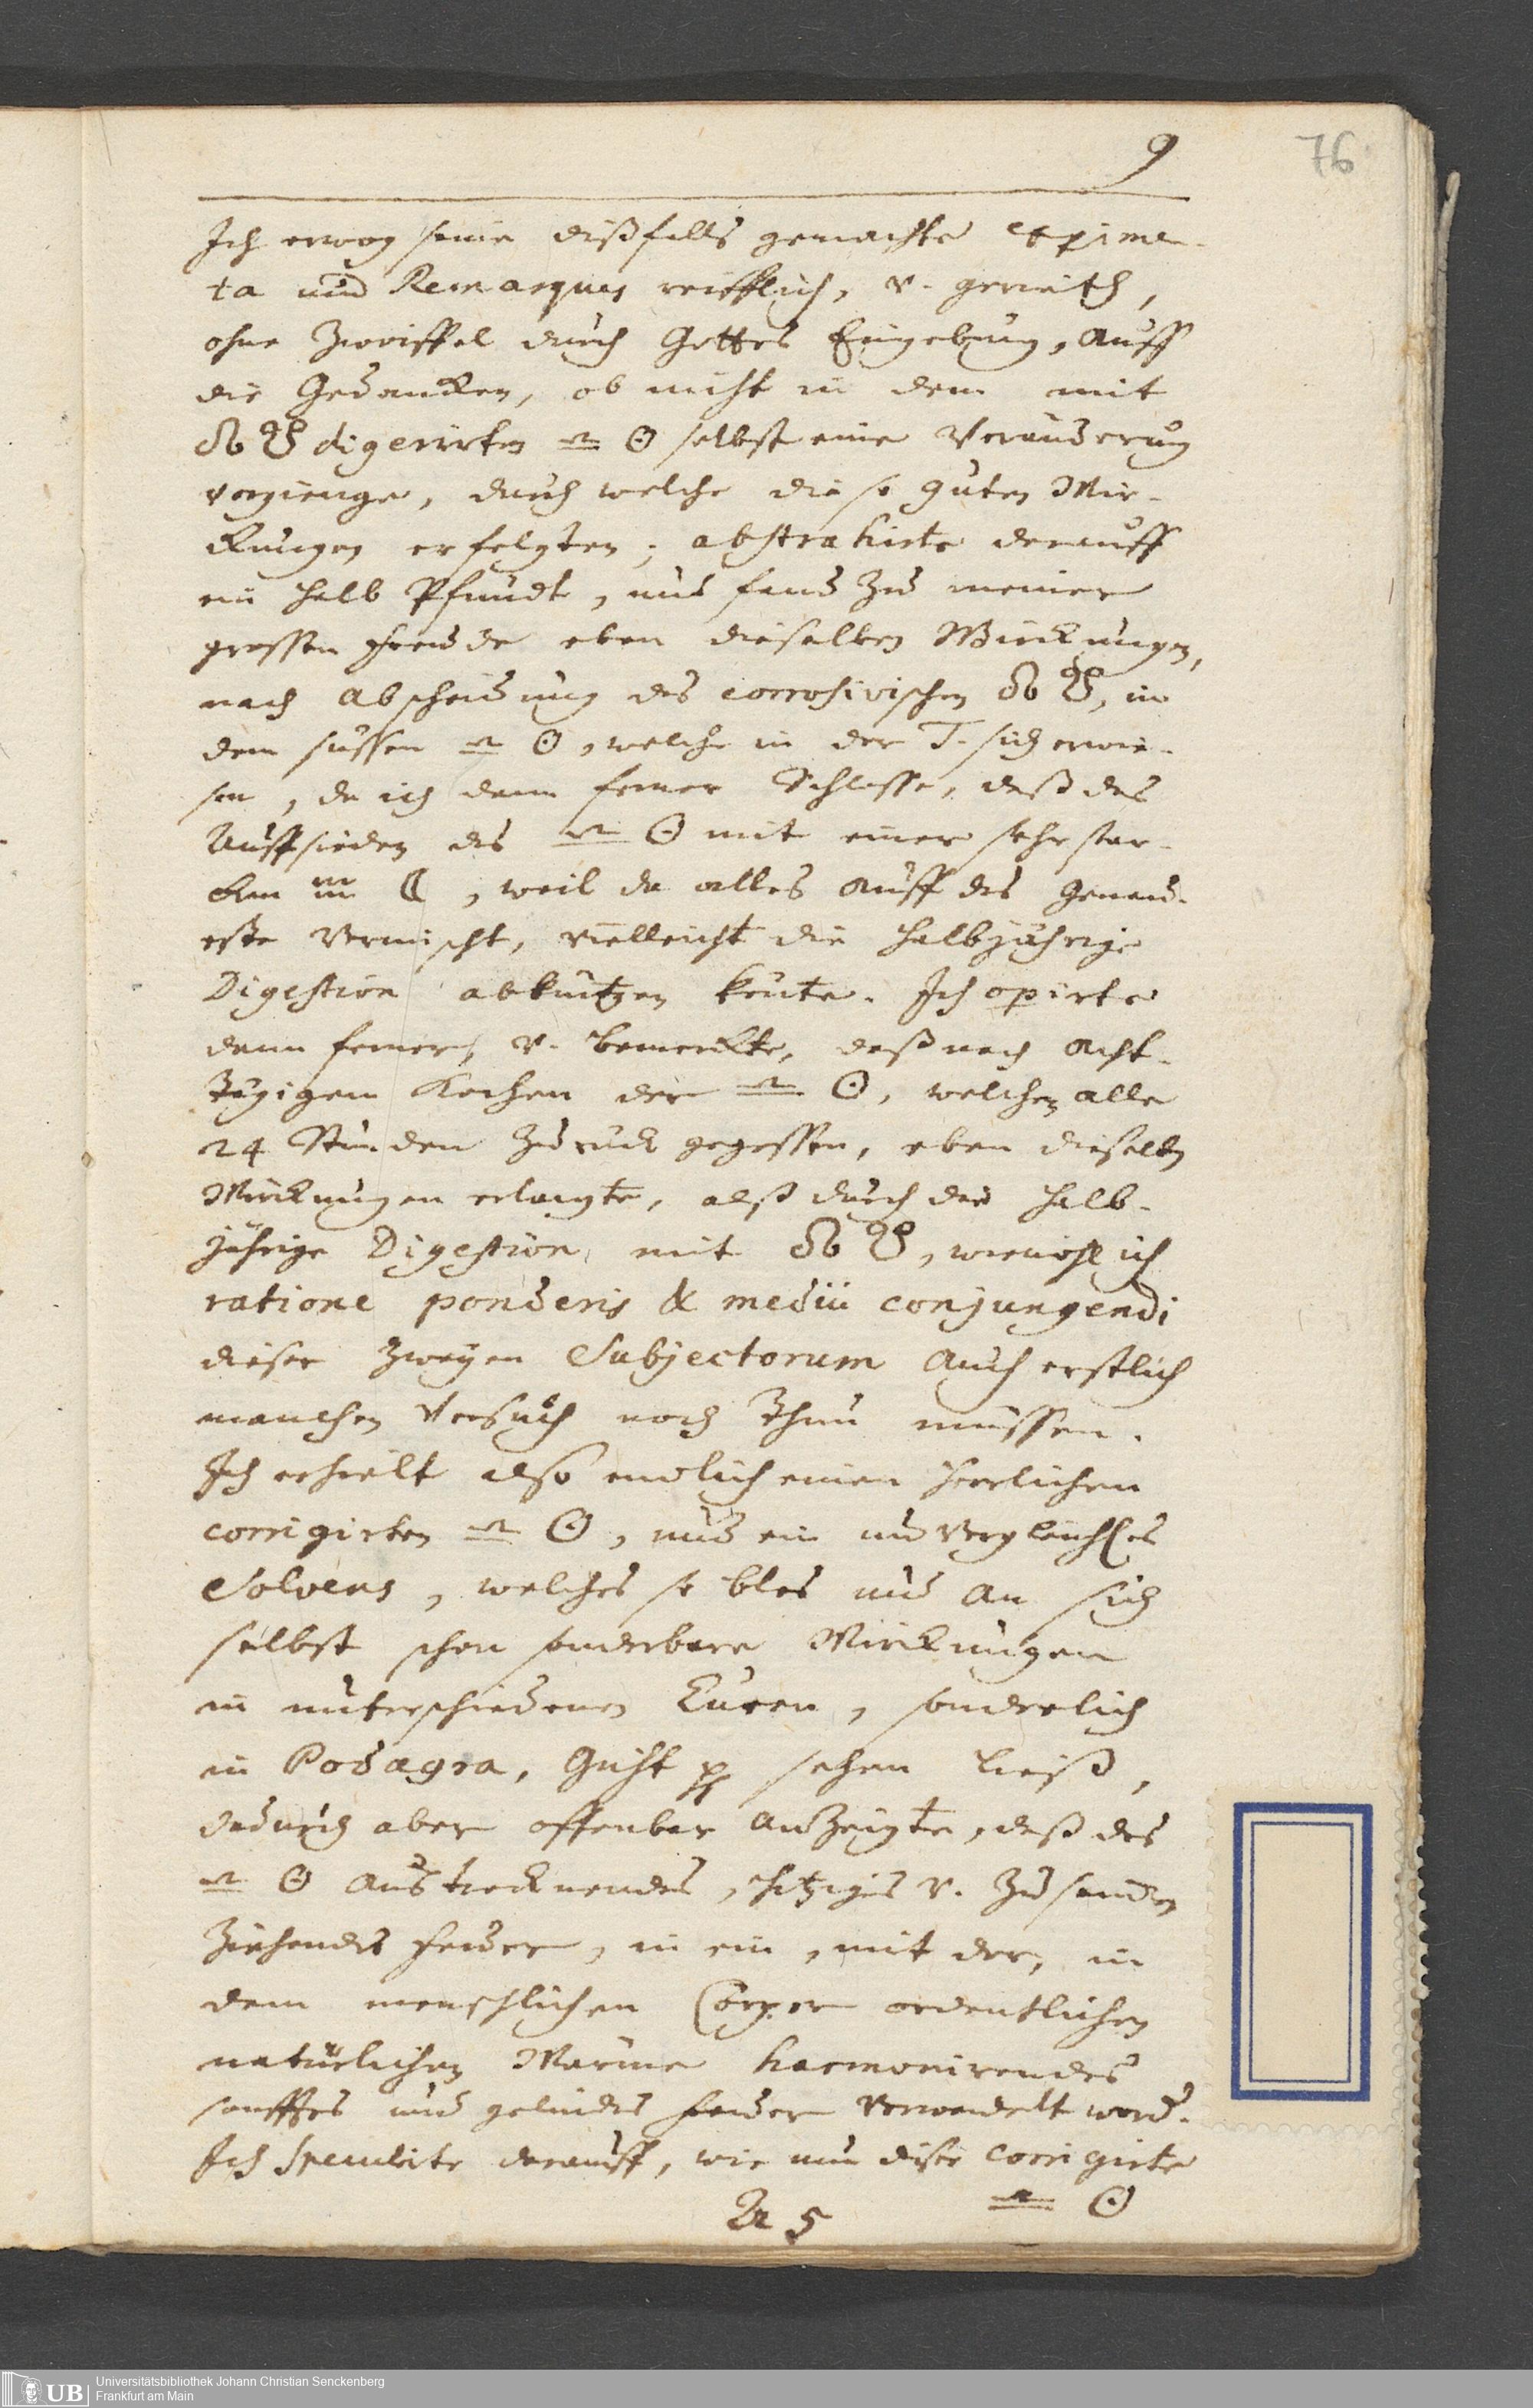 9
76
Ich erwog seine dißfalls gemachte expimen-
ta und Remarques reifflich, v. gerieth,
ohne Zweiffel durch Gottes Eingebung, auff
die Gedancken, ob nicht in dem mit
digerirten ☉ selbst eine Veränderung
vorgienge, durch welche diese guten Wir-
ckungen erfolgten; abstrahirte derauff
ein halb Pfundt, und fand zu meiner
grossen Freude eben dieselben Wirckungen,
nach Abscheidung des corrosivischen, in
dem süssen ☉, welche in der T. sich erwie-
sen, da ich dann ferner schlosse, daß das
Auffsieden des ☉ mit einer sehr star-
cken ☾, weil da alles auff das genau-
este vermischt, vielleicht die halbjährige
Digestion abkürtzen könte. Ich opirte
dann ferner, v. bemerckte, daß nach acht-
tägigem Kochen der ☉, welchen alle
24 Stunden zurück gegossen, eben dieselben
Wirckungen erlangte, alß durch die halb-
jährige Digestion mit, wiewohl ich
ratione ponderis & medii conjungendi
dieser zweyen Subjectorum auch erstlich
manchen Versuch noch thun müssen.
Ich erhielt also endlich einen herrlichen
corrigirten ☉, und ein unvergleichl(es
Solvens, welches so blos und an sich
selbst schon sonderbare Wirckungen
in unterschiedenen Curen, sonderlich
in Podagra, Gicht pp sehen ließ,
dadurch aber offenbar anzeigte, daß das
☉ austrocknendes, hitziges v. zusamen
ziehendes Feuer, in ein, mit der, in
dem menschlichen Cörper ordentlichen
natürlichen Wärme harmonirendes
sanfftes und gelindes Feuer verwandelt word.
Ich speculirte derauff, wie nun diser corrigirte
A 5 ☉
UB Universitätsbibliothek Johann Christian Senckenberg
Frankfurt am Main